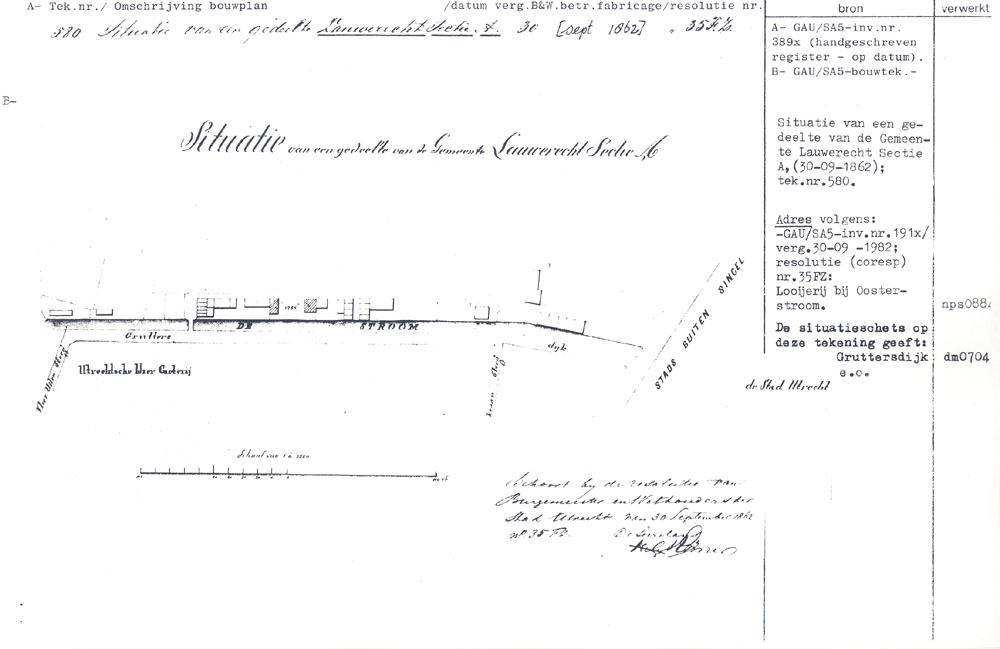 A- Tek.nr./ Omschrijving bouwplan /datum verg.B&W.betr.fabricage/resolutie nr.
580 Situatie van een gedeelte Lauwerecht Sectie A. 30 [sept 1862] „ 35 FZ.
B-
Situatie van een gedeelte van de Gemeente Lauwerecht Sectie A
STADS BUITEN SINGEL
DE STROOM
Grutters dyk
Utrechtsche IJzer Gieterij
de Stad Utrecht
Schaal van 1 à
Behoort by de resolutie van
Burgemeester en Wethouders der
Stad Utrecht van 30 September 1862
nº 35 FZ. De Secretaris
bron
A- GAU/SA5-inv.nr.
389x (handgeschreven
register - op datum).
B- GAU/SA5-bouwtek.-
Situatie van een ge-
deelte van de Gemeen-
te Lauwerecht Sectie
A,(30-09-1862);
tek.nr.580.
Adres volgens:
-GAU/SA5-inv.nr.191x/
verg.30-09 -1982;
resolutie (coresp)
nr.35FZ:
Looijerij bij Ooster-
stroom.
De situatieschets op
deze tekening geeft:
Gruttersdijk
e.o.
verwerkt
nps088
dm0704